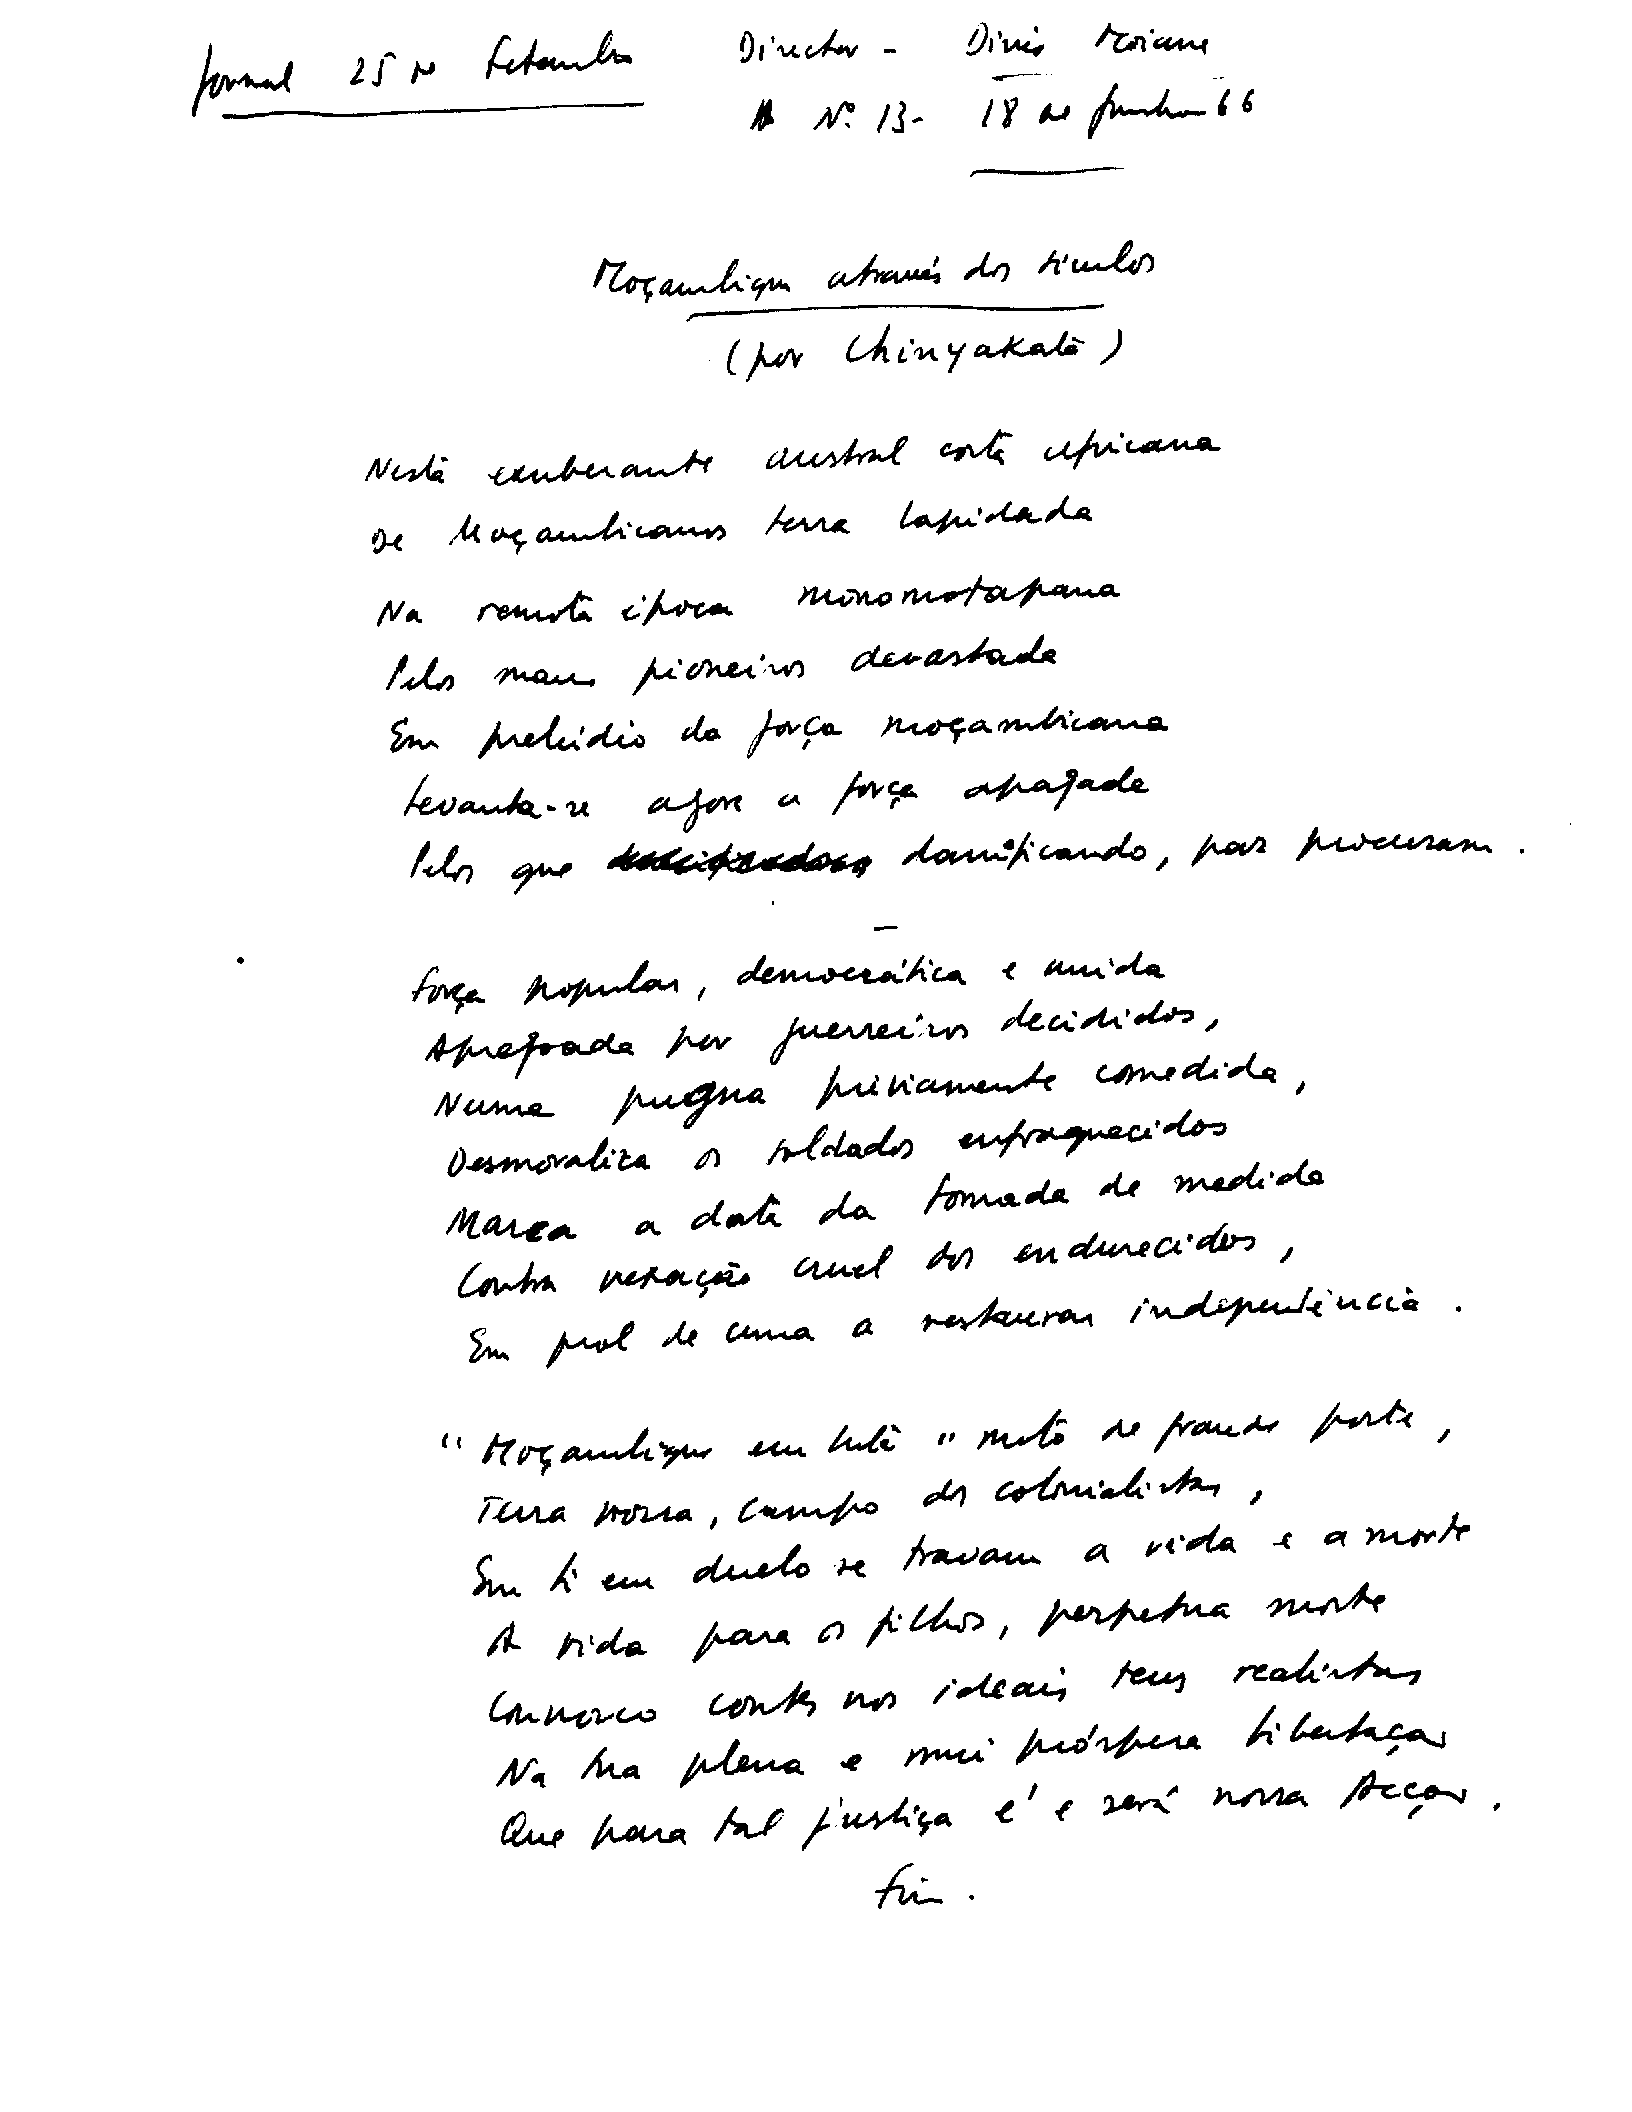 Jornal 25 de Setembro Director - Dinis Moiane
Nº 13 - 18 de Junho 66
Moçambique através dos séculos
(por Chinyakata)
Nesta exuberante austral costa africana
De Moçambicanos terra lapidada
Na remota época monomotapana
Pelos maus pioneiros devastada
Em prelúdio da força moçambicana
Levanta-se agora a força apagada
Pelos que danificando, paz procuram.
Força popular, democrática e unida
Apregoada por guerreiros decididos,
Numa pugna previamente comedida,
Desmoraliza os soldados enfraquecidos
Marca a data da tomada de medida
Contra vexação cruel dos endurecidos,
Em prol de uma a restaurar independência.
"Moçambique em luta" moto de grande porte,
Terra nossa, campo dos colonialistas,
Em ti em duelo se travam a vida e a morte
A vida para os filhos, perpetua morte
Connosco contes nos ideais teus realistas
Na tua plena e mui próspera libertação
Que para tal justiça é e será nossa Acção.
Fim.